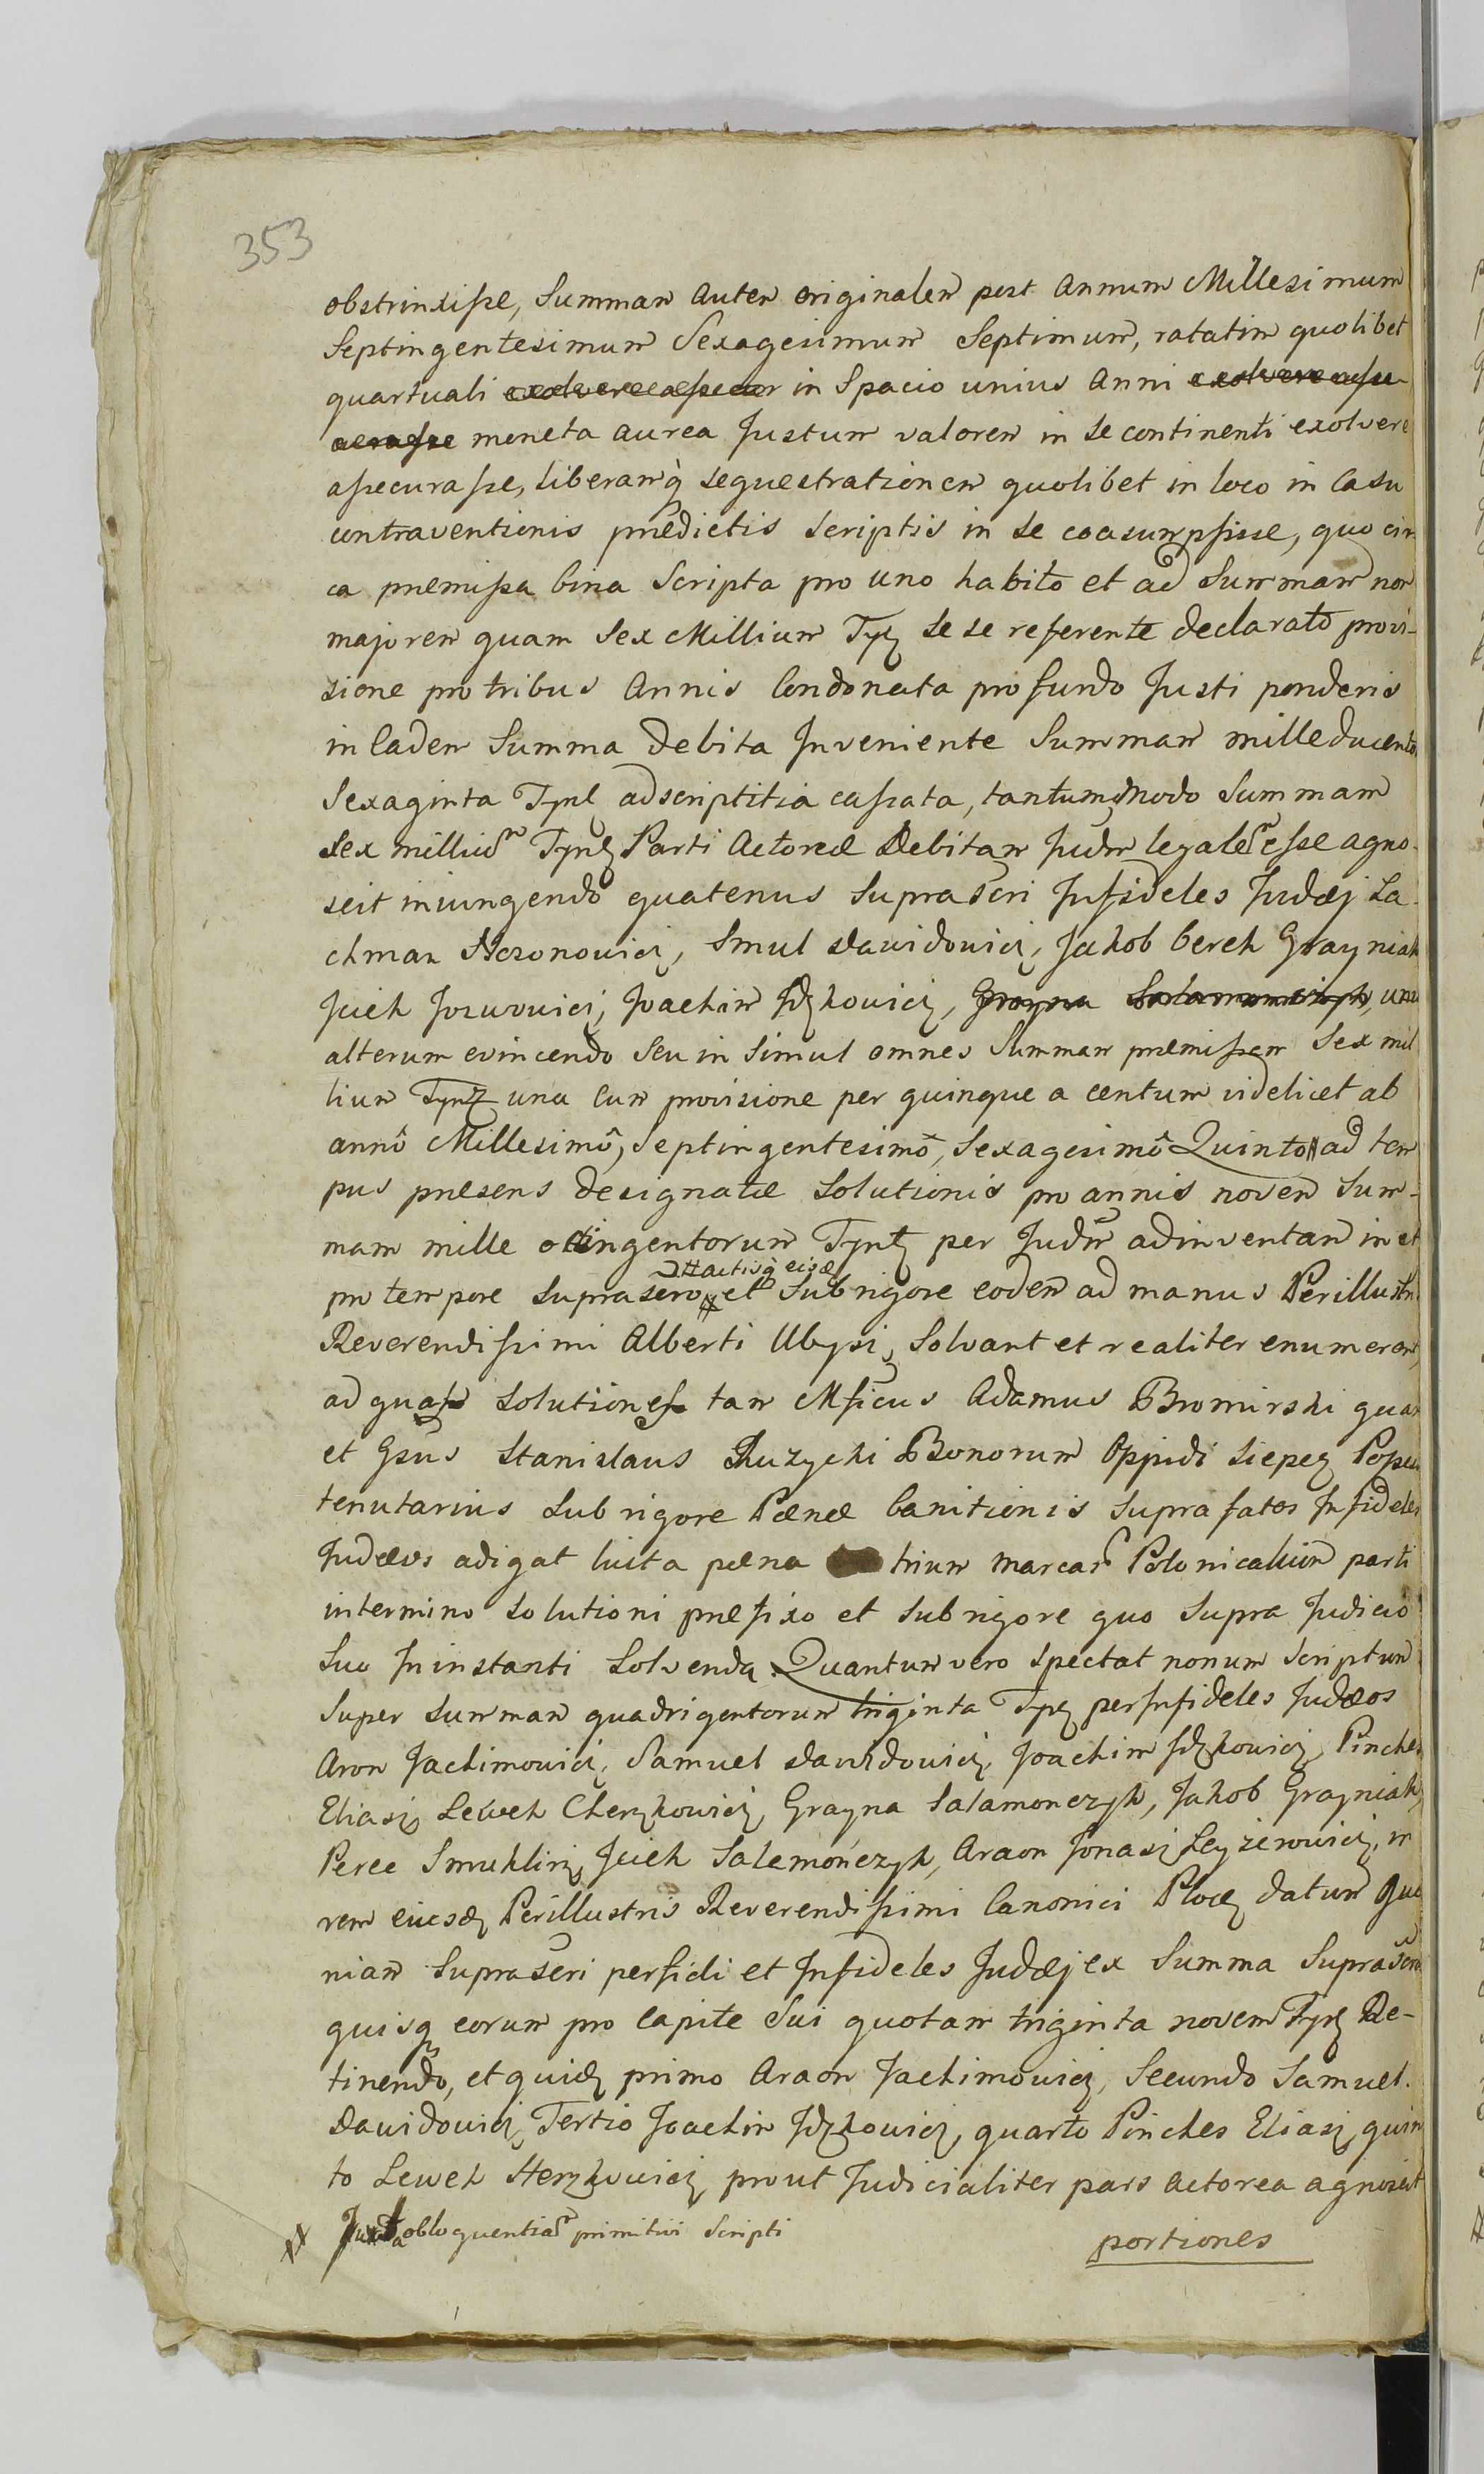 353
obstrinxiſse, Summam autem originalem post Annum Millesimum
Septingentesimum Sexagesimum Septimum, ratatim quolibet
quartuali in Spacio unius Anni
moneta aurea Justum valorem in se continenti exolvere
aſsecuraſse, liberamq̀ sequestrationem quolibet in loco in Casu
contraventionis prædictis scriptis in se coasumpsisse, quo cir
ca præmiſsa bina Scripta pro uno habito et ad Summam non
majorem quam Sex Millium Tyŋ se se referente declarato provi-
sione pro tribus Annis Condonata pro fundo Justi ponderis
in Eadem Summa debita Inveniente Summam mille ducento
Sexaginta Tynf adscriptitia caſsata, tantummodo Summam
Sex milliũ Tynf Parti Actoreæ Debitam Judm legalẽ eſse agno-
scit iniungendo quatenus Suprascri Infideles Judæj La-
chman Aronowicz, Smul Dawidowicz, Jakob Berek Grayniak
Jciek Jozwowicz, Joachim Jzkowicz, Grayna Salamonczyk, unu
alterum evincendo Seu in Simul omnes Summam præmiſsam Sex mil
lium Tynf una Cum provisione per quinque a centum videlicet ab
annô Millesimô, Septingentesimô, Sexagesimô Quinto # ad tem
pus præsens designatæ Solutionis pro annis novem Sum-
mam mille octingentorum Tynf per Judm adinventam in et
# actisq̀ eisd
pro tempore Suprascro # et Sub rigore eodem ad manus Perillustri
Reverendiſsimi Alberti Ubysz, Solvant et realiter enumerent,
ad quas Solutiones tam Mficus Adamus Bromirski quam
et Gsus Stanislaus Ruzycki Bonorum Oppidi Siepcz Poſses
tenutarius Sub rigore Pænæ Banitionis Supra fatos Infideles
Judæos adigat luita pæna trium Marcar Polonicalium parti
in termino Solutioni præfixo et sub rigore quo Supra Judicio
Suo In instanti Solvenda. Quantum vero spectat nonum Scriptum
Super Summam quadrigentorum triginta Tyf per Infideles Judæos
Aron Jachimowicz, Samuel Dawidowicz, Joachim Jzkowicz, Pinches
Eliasz, Lewek Cherzkowicz, Grayna Salamonczyk, Jakob Grayniak,
Perec Smuklirz, Jciek Salemończyk, Araon Jonasz Leyzerowicz, in
rem eiusd Perillustris Reverendiſsimi Canonici Ploc datum Quo
niam Suprascri perfidi et Infideles Judæj ex Summa Suprascra
quisq eorum pro Capite Sui quotam triginta novem Tynf De-
tinendo, et quid primo Araon Jachimowicz, Secundo Samuel
Dawidowicz, Tertio Joachim Jzkowicz, quarto Pinches Eliasz, quin
to Lewek Herzkowicz, prout Judicialiter pars actorea agnoscit
# Juxta obloquentiam primitivi Scripti
portiones